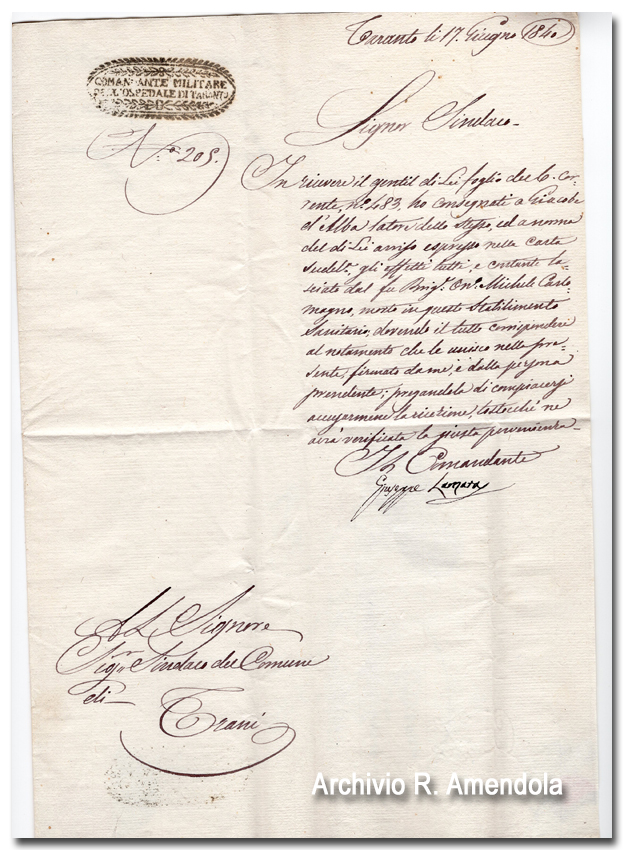 Taranto li 17. Giugno 1840
COMANDANTE MILITARE
DELL'OSPEDALE DI TARANTO
N.° 205.
Signor Sindaco
In ricevere il gentil di Lei foglio del 6. Cor-
rente, n.° 483, ho consegnati a Giacobe
d'Alba latore dello stesso, ed a norma
del di Lei avviso espresso nella carta
sudet.ª, gli effetti tutti, e contante la-
sciato dal fu Brig.e On.º Michele Carlo
magno, morto in questo Stabilimento
Sanitario, dovendo il tutto corrispondere
al notamento che le unisco nella pre-
sente, firmato da me, e dalla persona
prendente; pregandola di compiacersi
accusarmene la ricezione, tostocchè ne
avrà verificata la giusta pervenienza
Il Comandante
Giuseppe
Al Signore
Sig.r Sindaco del Comune
di
Trani
Archivio R. Amendola